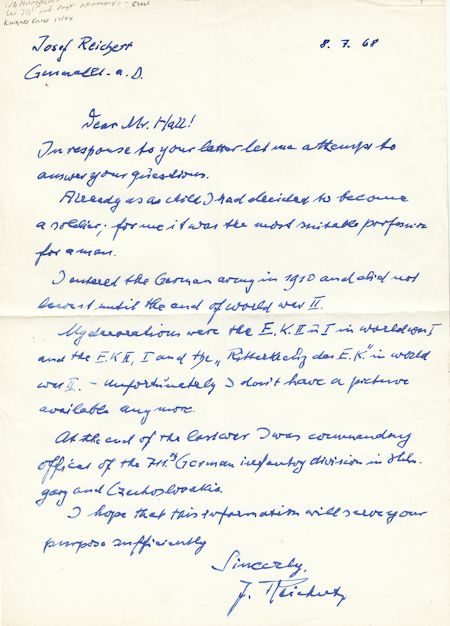 Knights Cross 12/44
Josef Reichert 8. 7. 68
Generallt. a. D.
Dear Mr. Hall!
In response to your letter let me attempt to
answer your questions.
Already as as child I had decided to become
a soldier; for me it was the most suitable profession
for a man.
I entered the German army in 1910 and did not
leave it until the end of world war II.
My decorations were the E.K. II u I in world war I
and the E.K II, I and the „Ritterkreuz des E.K." in world
war II. – Unfortunately I don't have a picture
available any more.
At the end of the last war I was commanding
officer of the 711. German infantry division in Hun-
gary and Czechoslovakia.
I hope that this information will serve your
purpose sufficiently
Sincerely,
J. Reichert